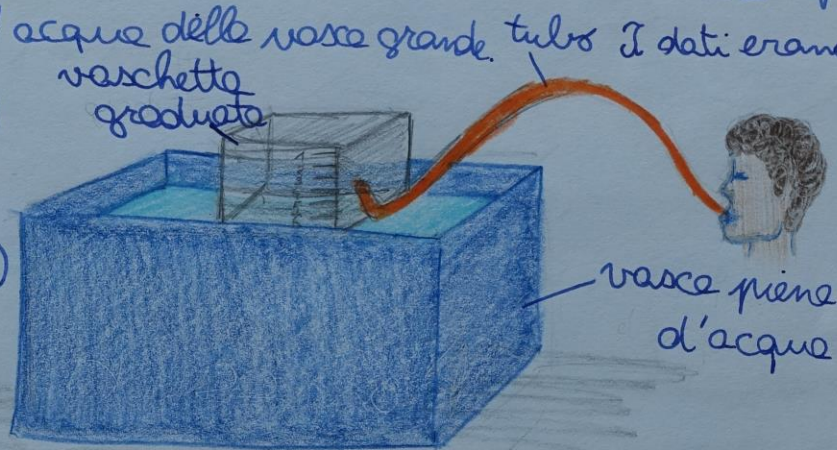 acqua della vasca grande. tubo I dati eran
vaschetta
graduata
vasca piena
d'acqua